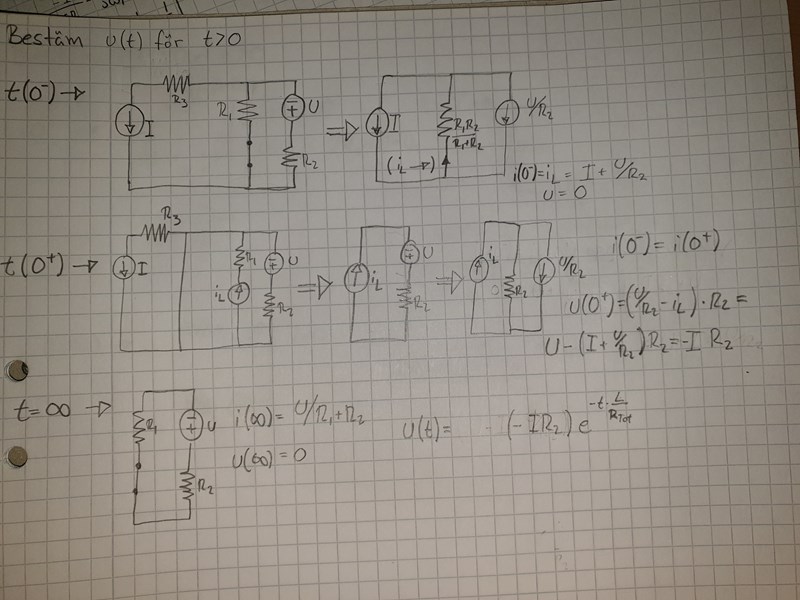 Bestäm u(t) för t>0
t(0⁻) →
R₃
I
R₁
U
R₂
⇒
I
R₁R₂
R₁+R₂
U/R₂
(iL →)
i(0⁻) = iL = I + U/R₂
U = 0
t(0⁺) →
R₃
I
R₁
iL
U
R₂
⇒
iL
U
R₂
⇒
iL
R₂
U/R₂
i(0⁻) = i(0⁺)
u(0⁺) = (U/R₂ - iL) · R₂ =
U - (I + U/R₂) R₂ = -I R₂
t = ∞ →
R₁
U
R₂
i(∞) = U/R₁+R₂
u(∞) = 0
u(t) = (-IR₂) e^(-t · L/RTot)